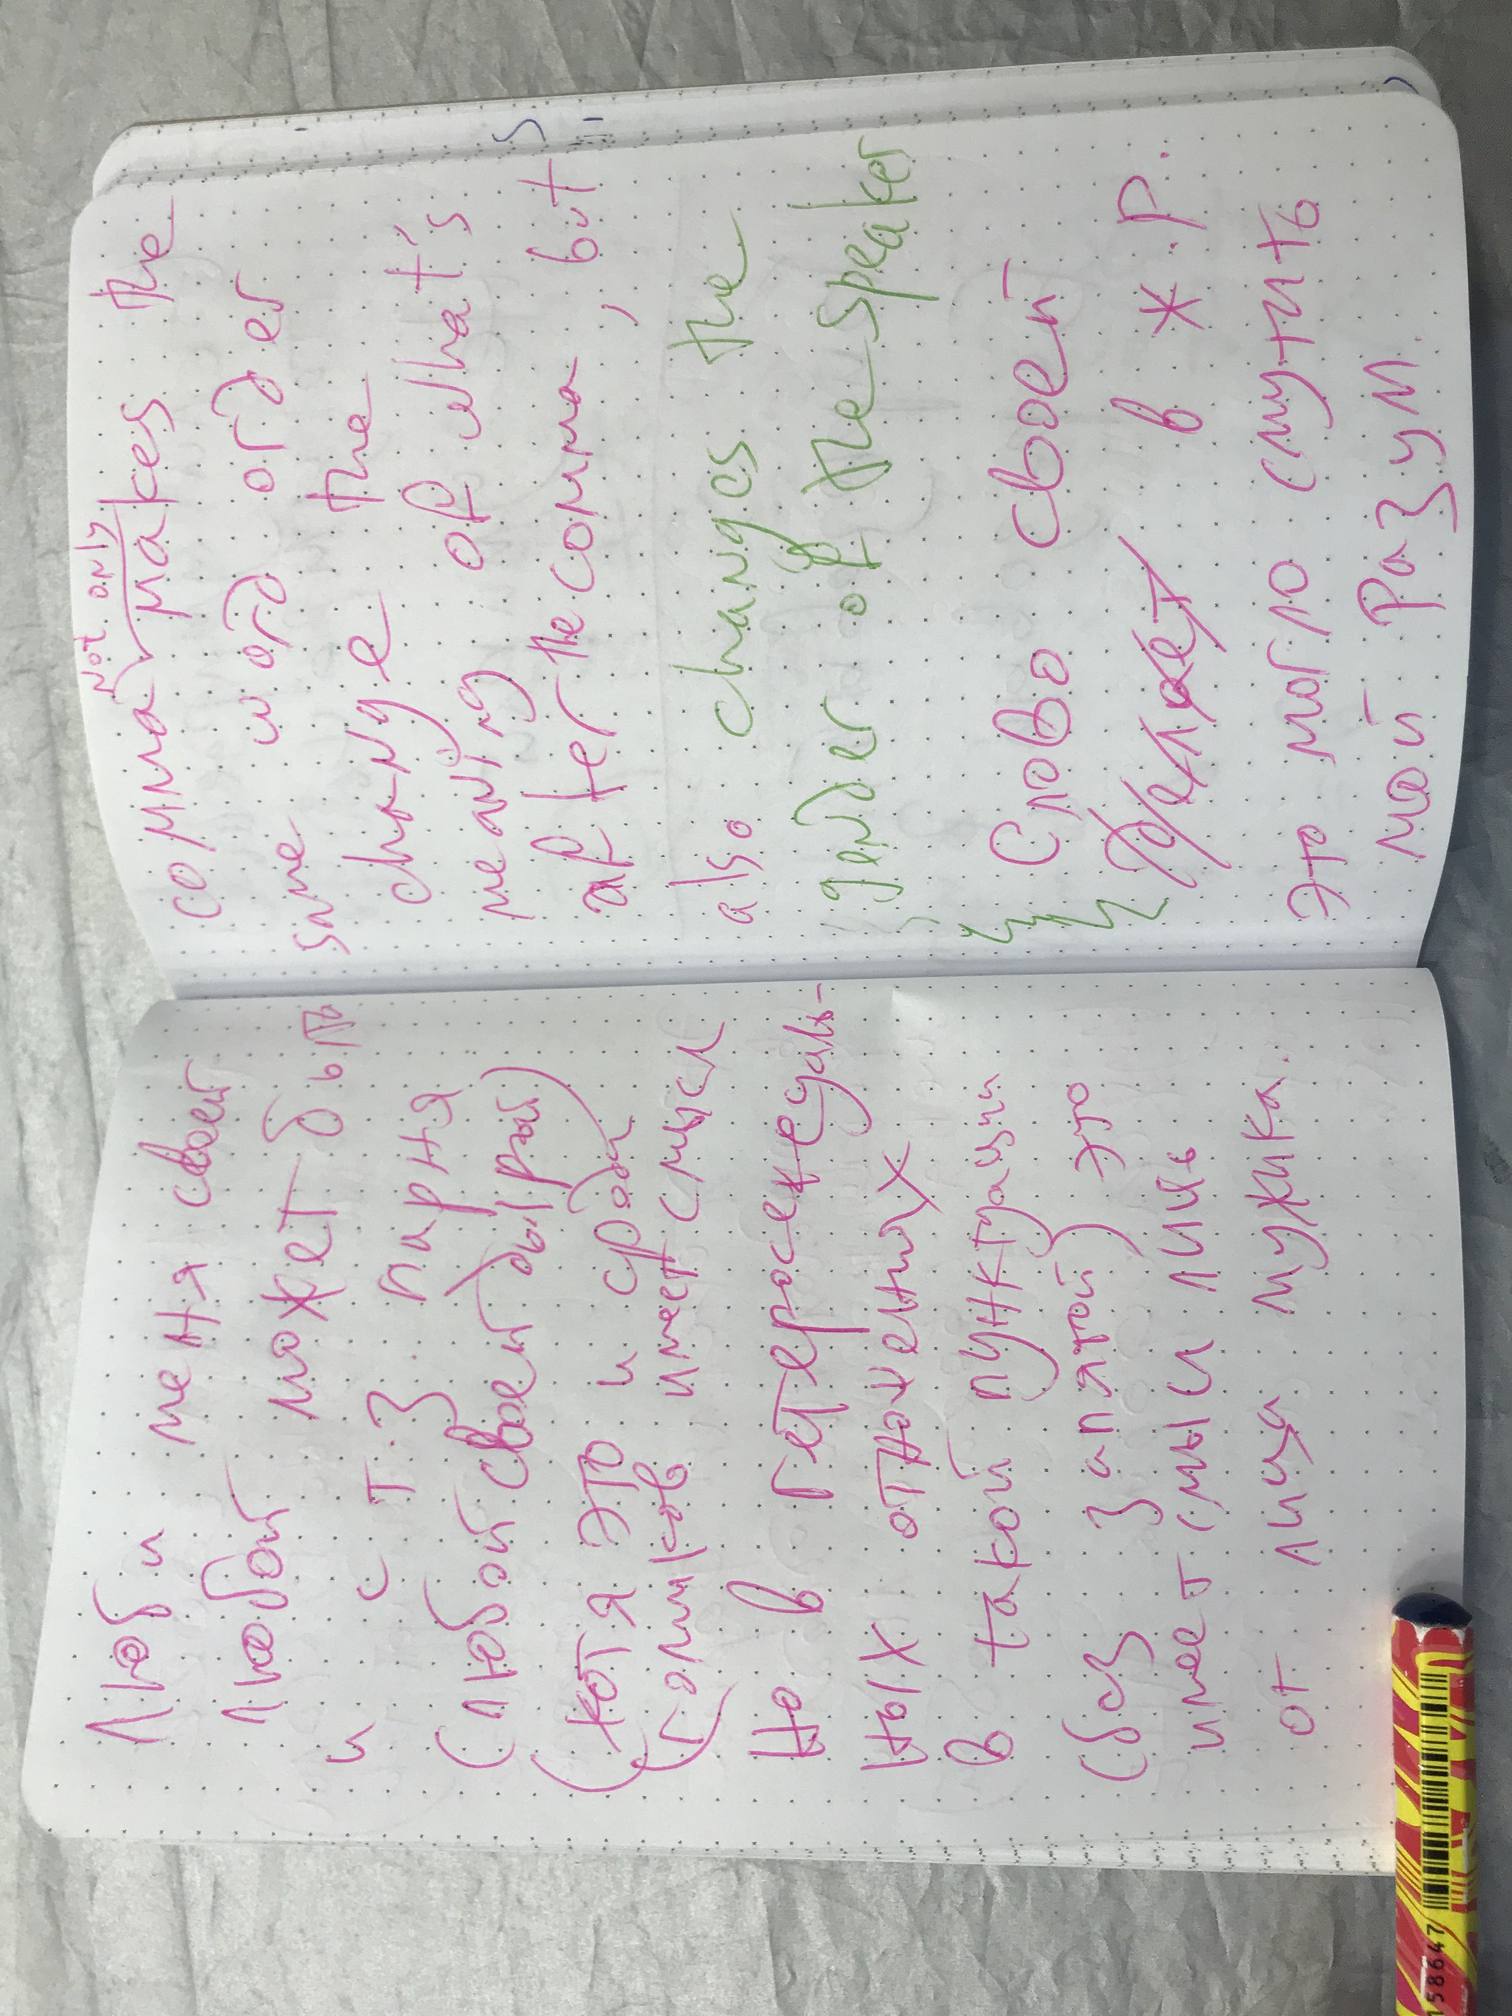 Люби меня своей
любой может быть
и с т з парня
(любой своей дырой)
(хотя это и среди
(гомиков имеет смысл
Но в гетеросексуаль-
ных отношениях
в такой пунктуации
(без запятой) это
имеет смысл лишь
от лица мужика.
not only
comma makes the
same word order
change the
meaning of what's
after the comma, but
also changes the
gender of the speaker
Слово своей
делает в ж.р.
это могло смутить
мой разум.
158647